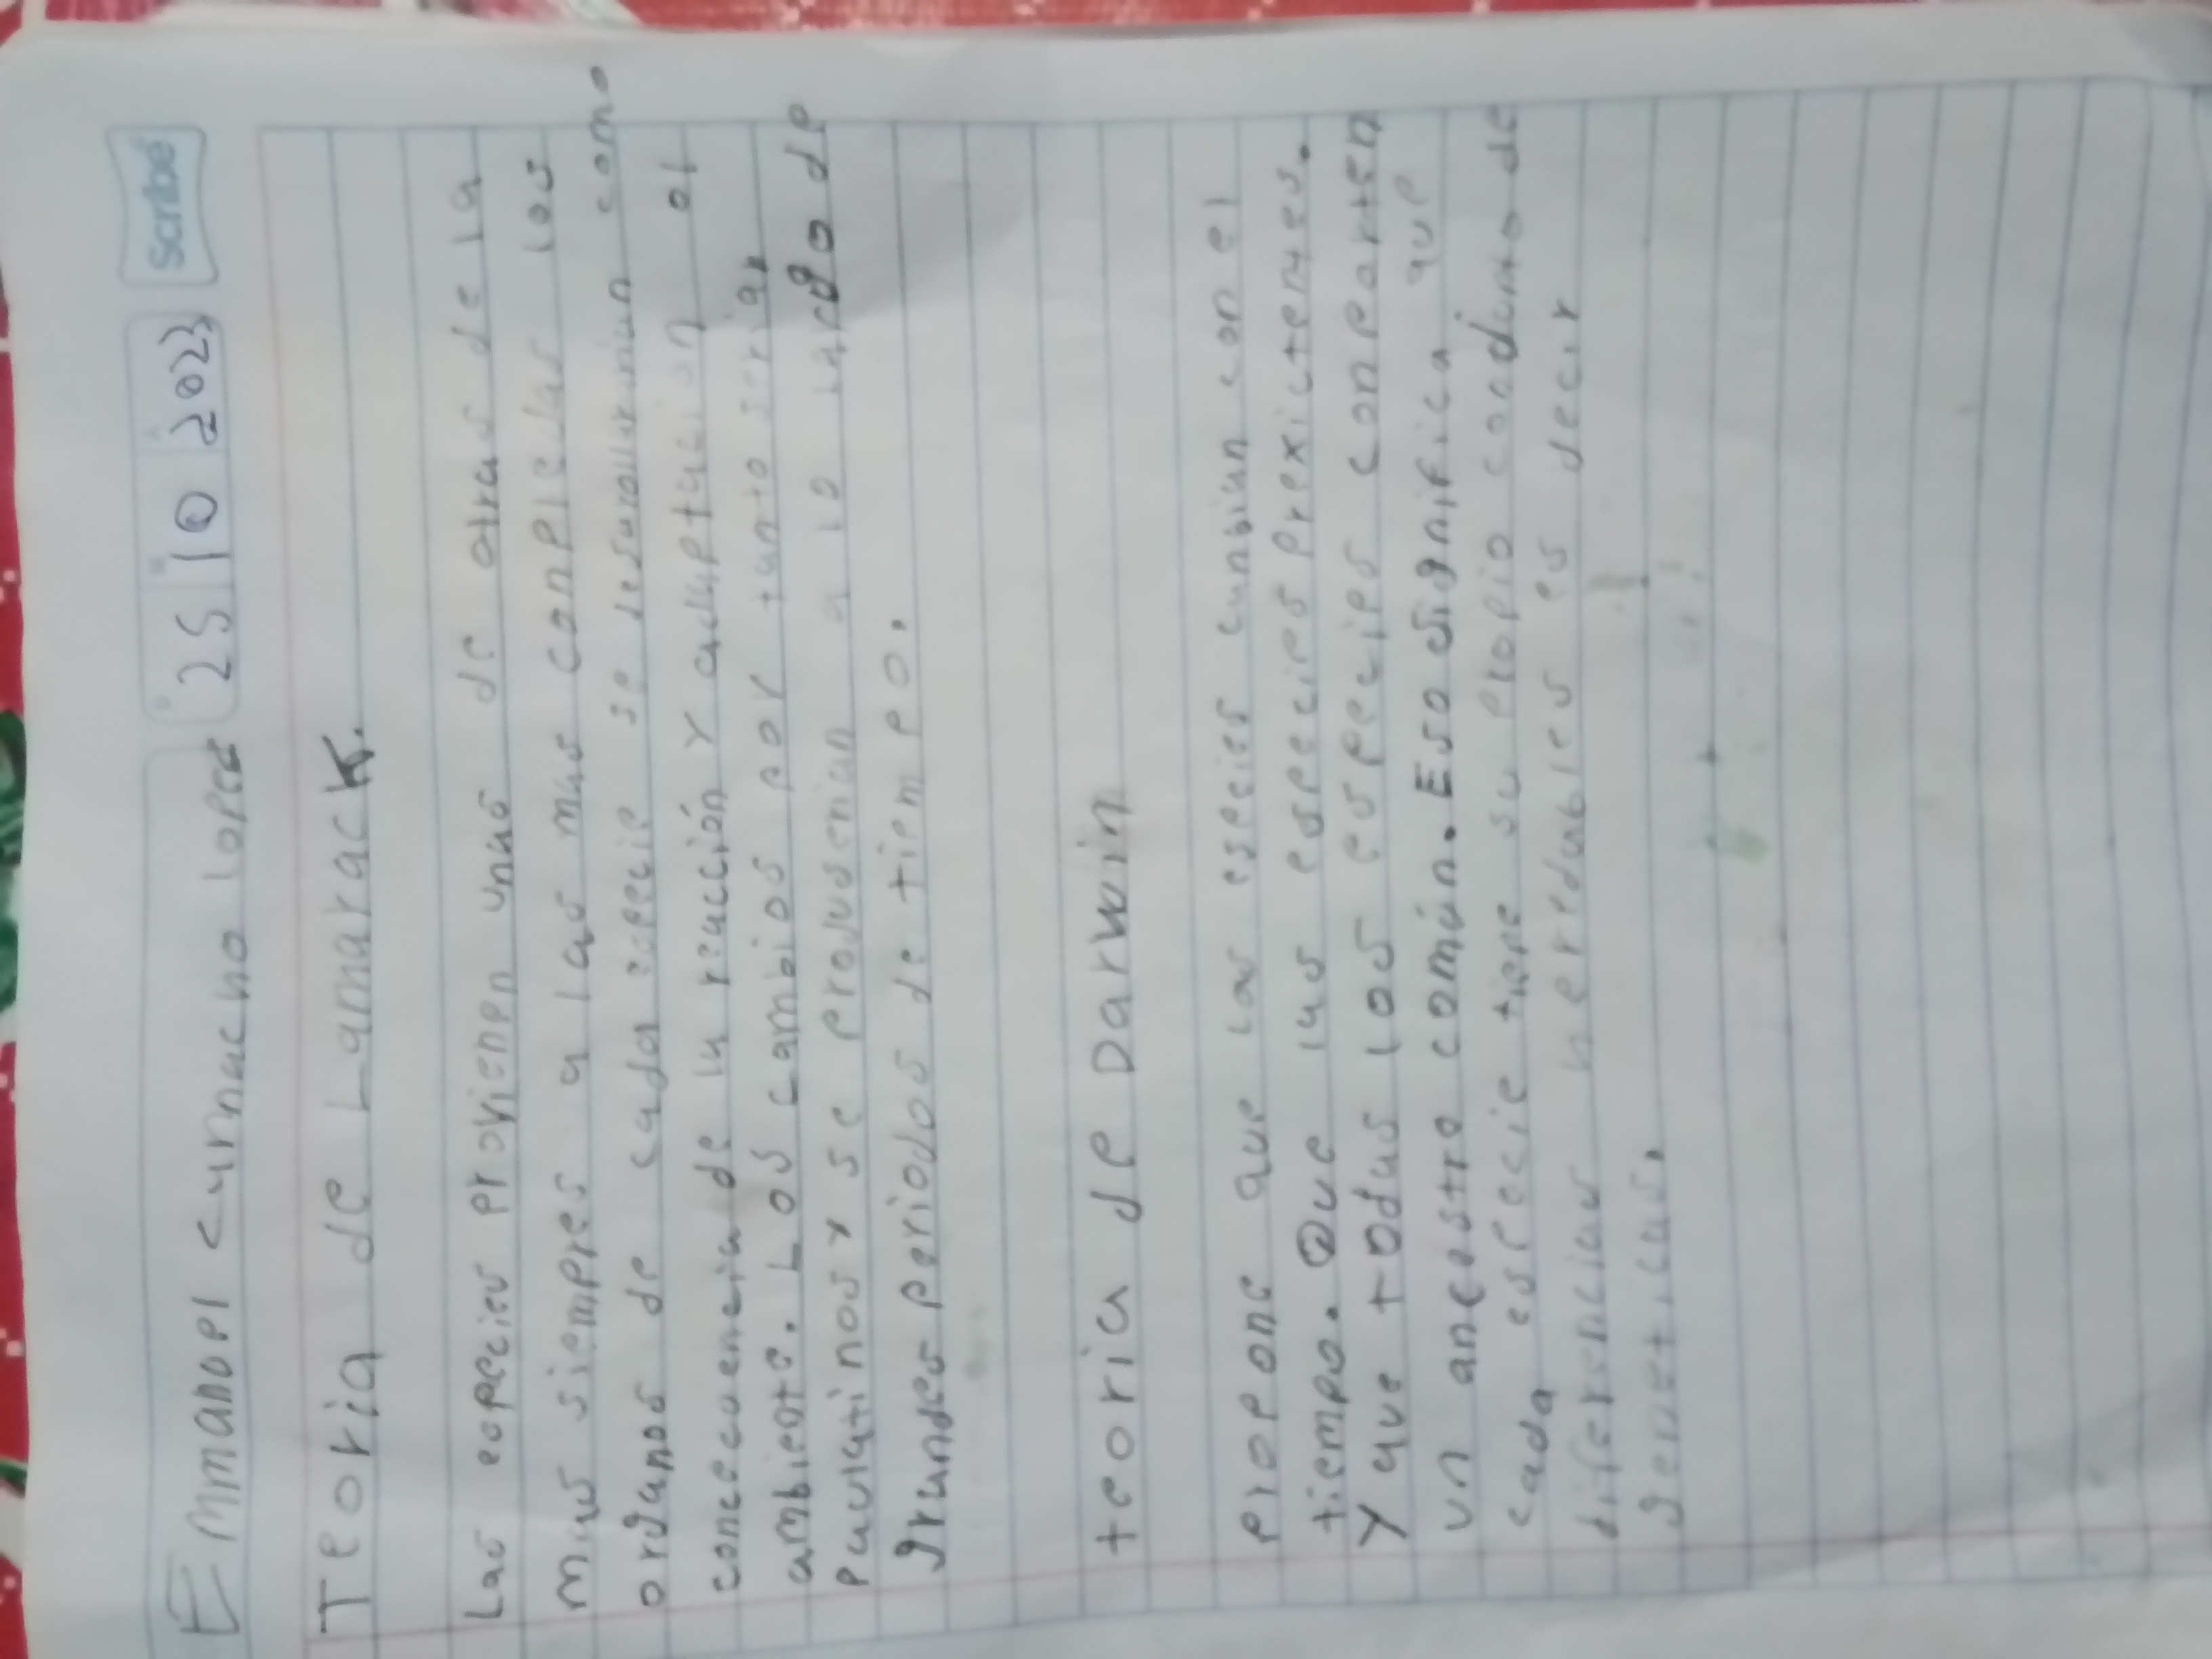 Emmanuel camacho lopez 25 10 2023 Scribe
Teoria de Lamarack.
Las especies provienen unas de otras de la
mas siempres a las mas conplejas los
organos de cada especie se desarrollarian como
concecuencia de la reacción y adaptacion al
ambiente. Los cambios por tanto serian
paulatinos y se produserian a lo largo de
grandes periodos de tiempo.
teoria de Darwin
Propone que las especies cambian con el
tiempo. Que las especies prexictentes.
Y que todas las especies conparten
un ancestro común. Eso significa que
cada especie tiene su propio condunto de
diferencias heredables es decir
geneticas.